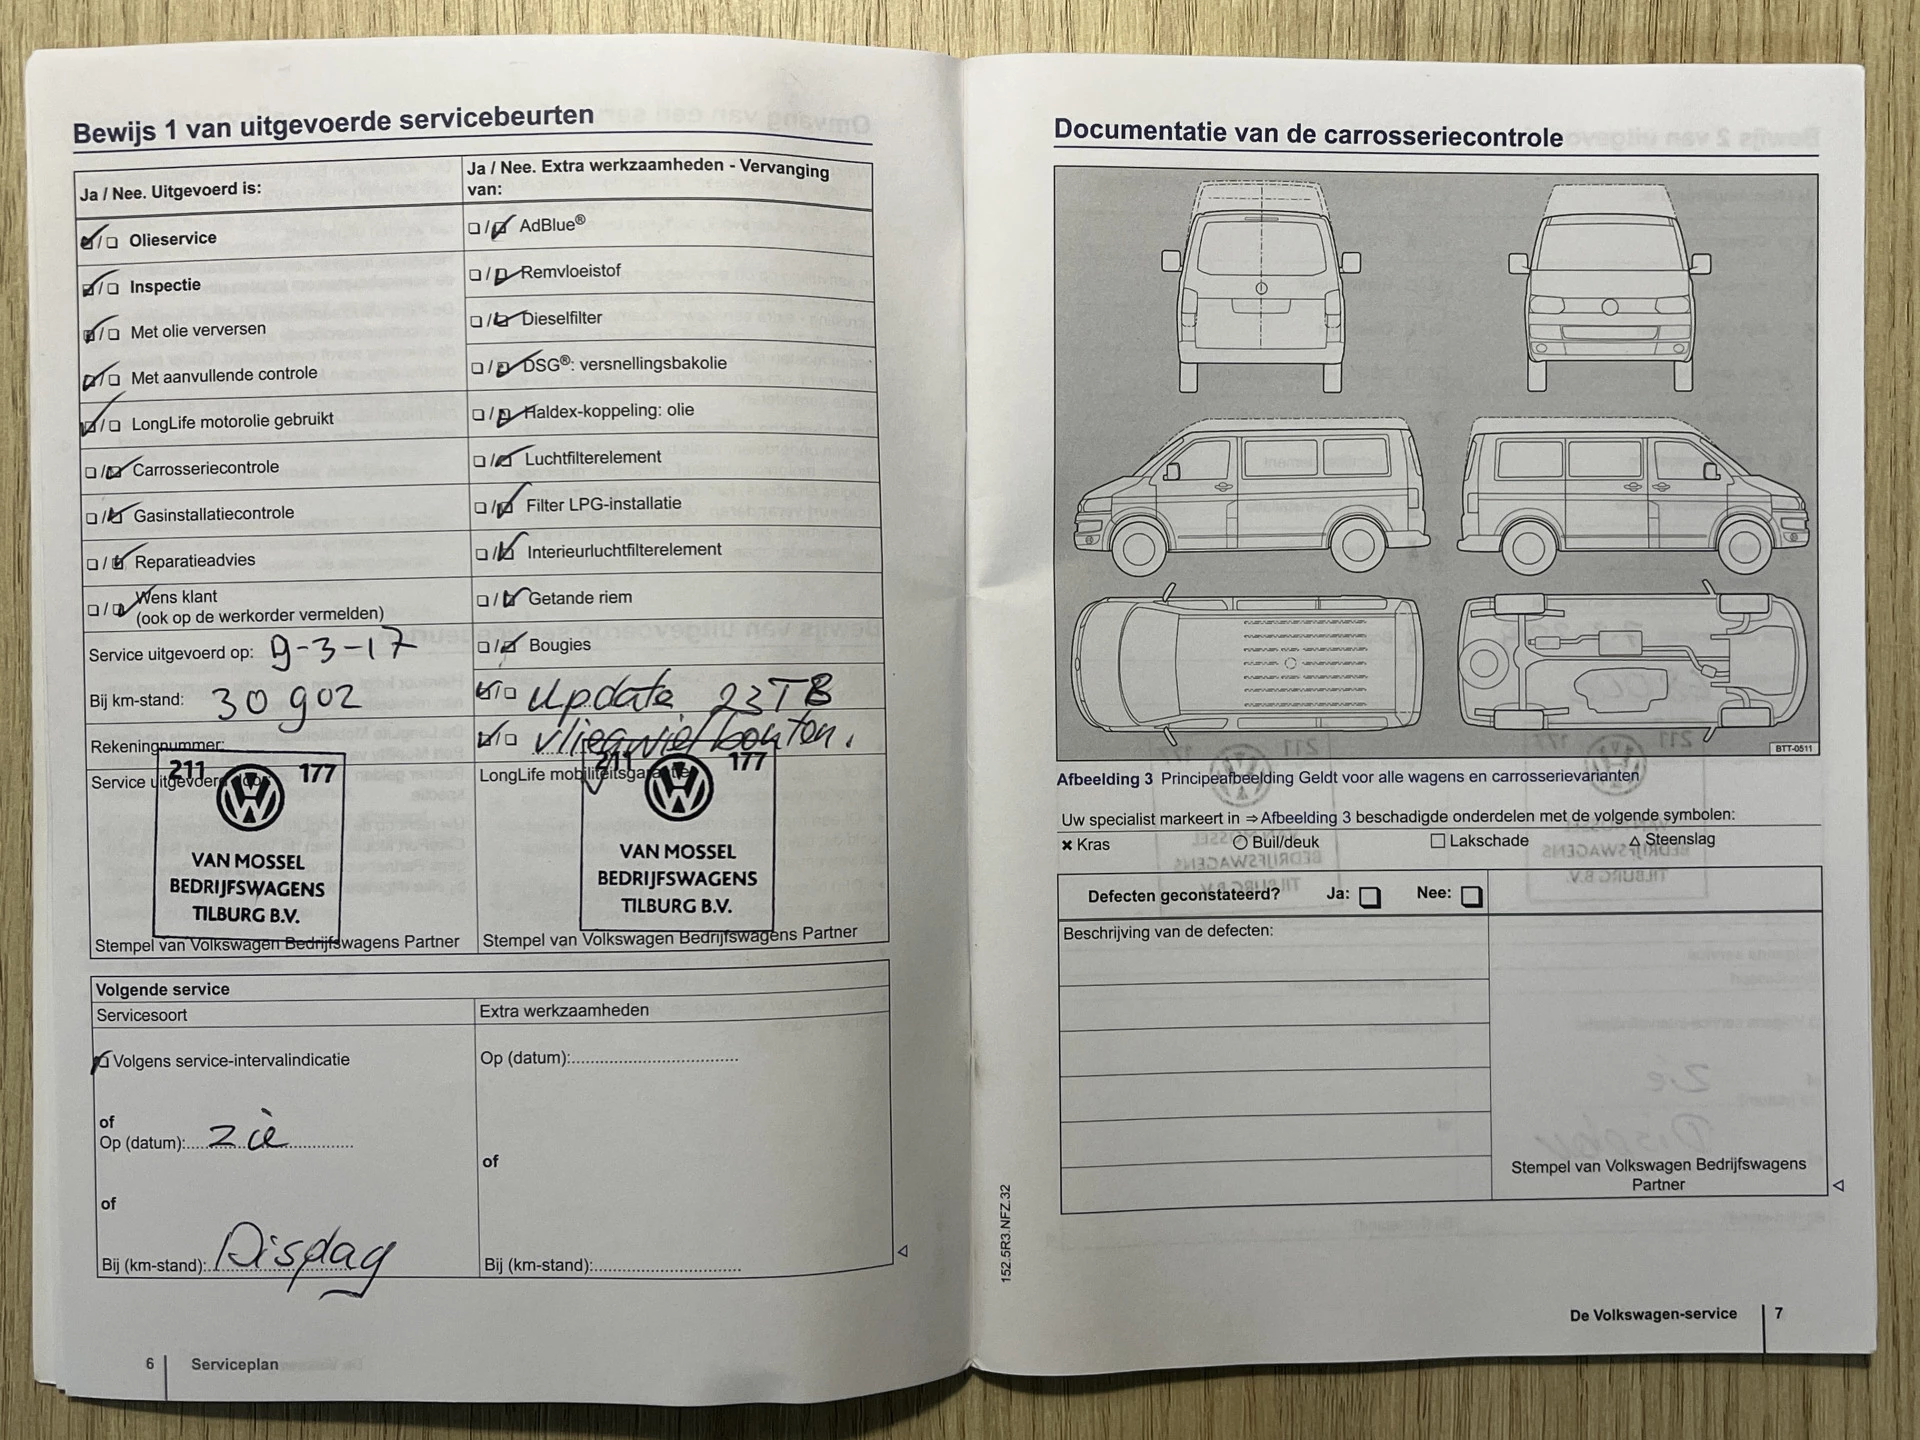 Bewijs 1 van uitgevoerde servicebeurten
Ja / Nee. Uitgevoerd is:
Olieservice
Inspectie
Met olie verversen
Met aanvullende controle
LongLife motorolie gebruikt
Carrosseriecontrole
Gasinstallatiecontrole
Reparatieadvies
Wens klant
(ook op de werkorder vermelden)
Service uitgevoerd op: 9-3-17
Bij km-stand: 30902
Rekeningnummer:
Service uitgevoerd door:
211 177
VAN MOSSEL
BEDRIJFSWAGENS
TILBURG B.V.
Stempel van Volkswagen Bedrijfswagens Partner
Ja / Nee. Extra werkzaamheden - Vervanging
van:
AdBlue®
Remvloeistof
Dieselfilter
DSG®: versnellingsbakolie
Haldex-koppeling: olie
Luchtfilterelement
Filter LPG-installatie
Interieurluchtfilterelement
Getande riem
Bougies
update 23TB
vliegwielbouten.
LongLife mobiliteitsgarantie
211 177
VAN MOSSEL
BEDRIJFSWAGENS
TILBURG B.V.
Stempel van Volkswagen Bedrijfswagens Partner
Volgende service
Servicesoort
Volgens service-intervalindicatie
of
Op (datum): zie
of
Bij (km-stand): Display
Extra werkzaamheden
Op (datum):
of
Bij (km-stand):
6 Serviceplan
Documentatie van de carrosseriecontrole
BTT-0511
Afbeelding 3 Principeafbeelding Geldt voor alle wagens en carrosserievarianten
Uw specialist markeert in ⇒ Afbeelding 3 beschadigde onderdelen met de volgende symbolen:
× Kras ○ Buil/deuk □ Lakschade △ Steenslag
Defecten geconstateerd? Ja: Nee:
Beschrijving van de defecten:
Stempel van Volkswagen Bedrijfswagens
Partner
152.5R3.NFZ.32
De Volkswagen-service 7